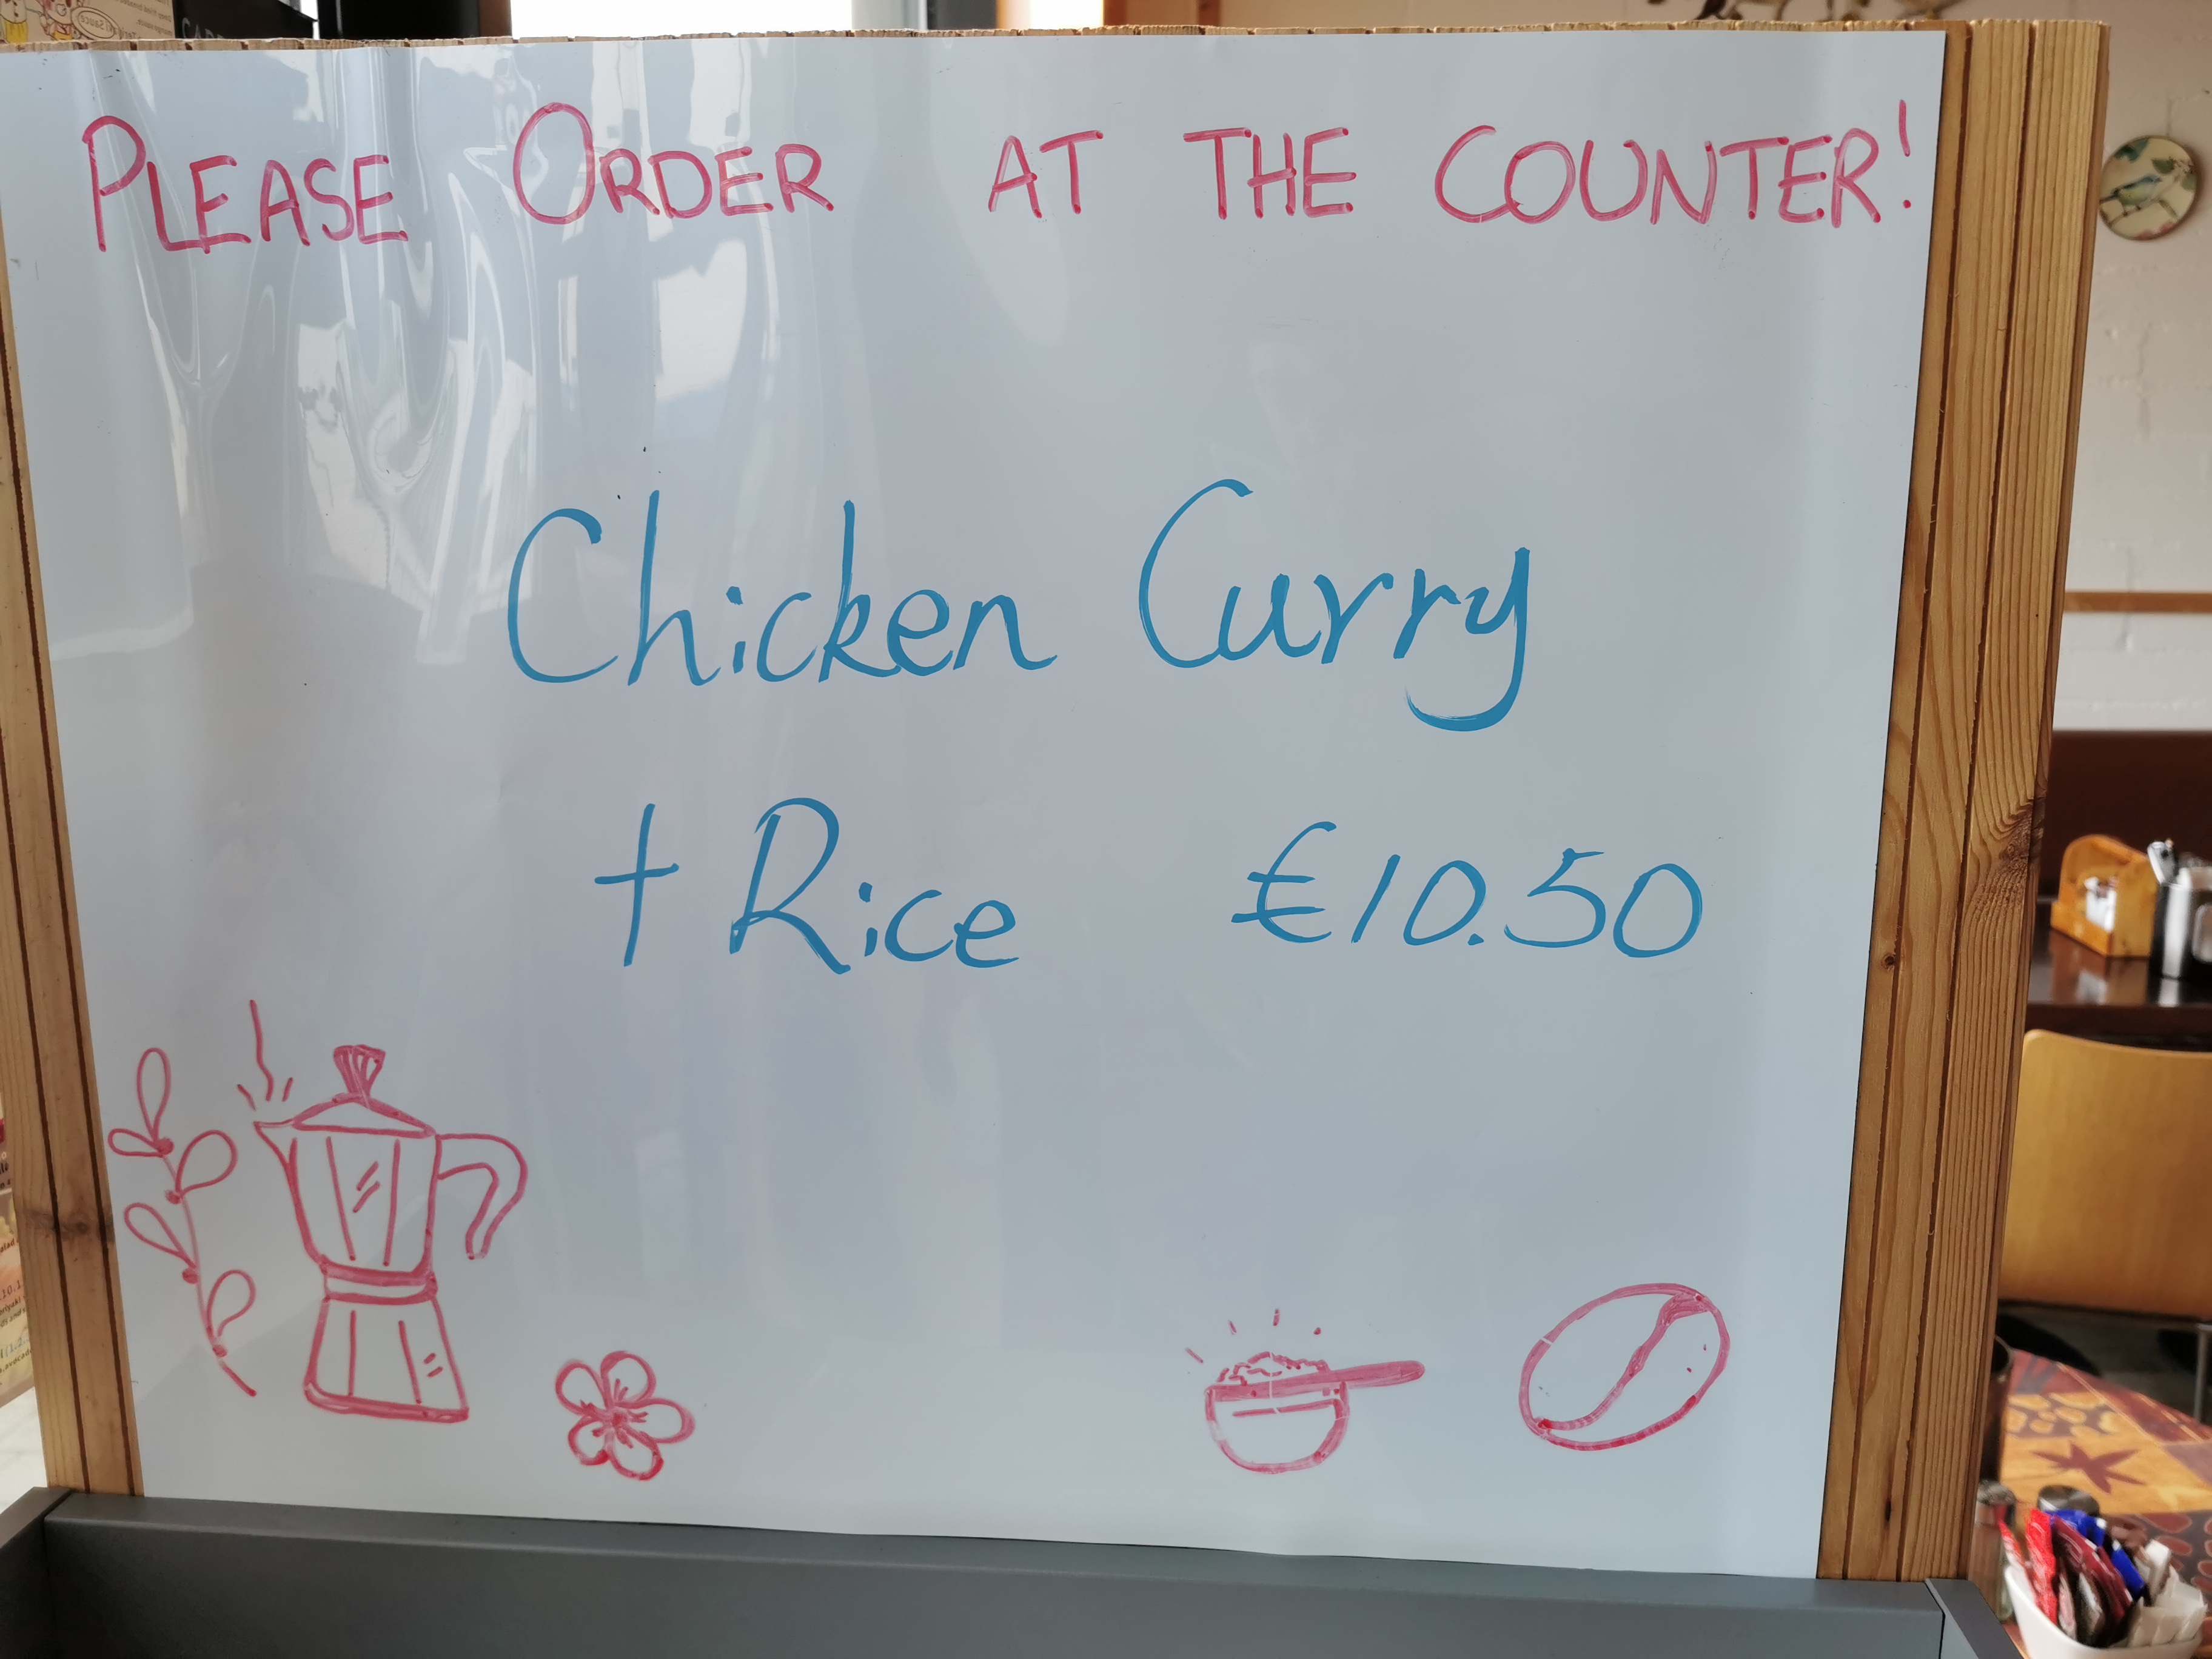 PLEASE ORDER AT THE COUNTER!
Chicken Curry
+ Rice €10.50